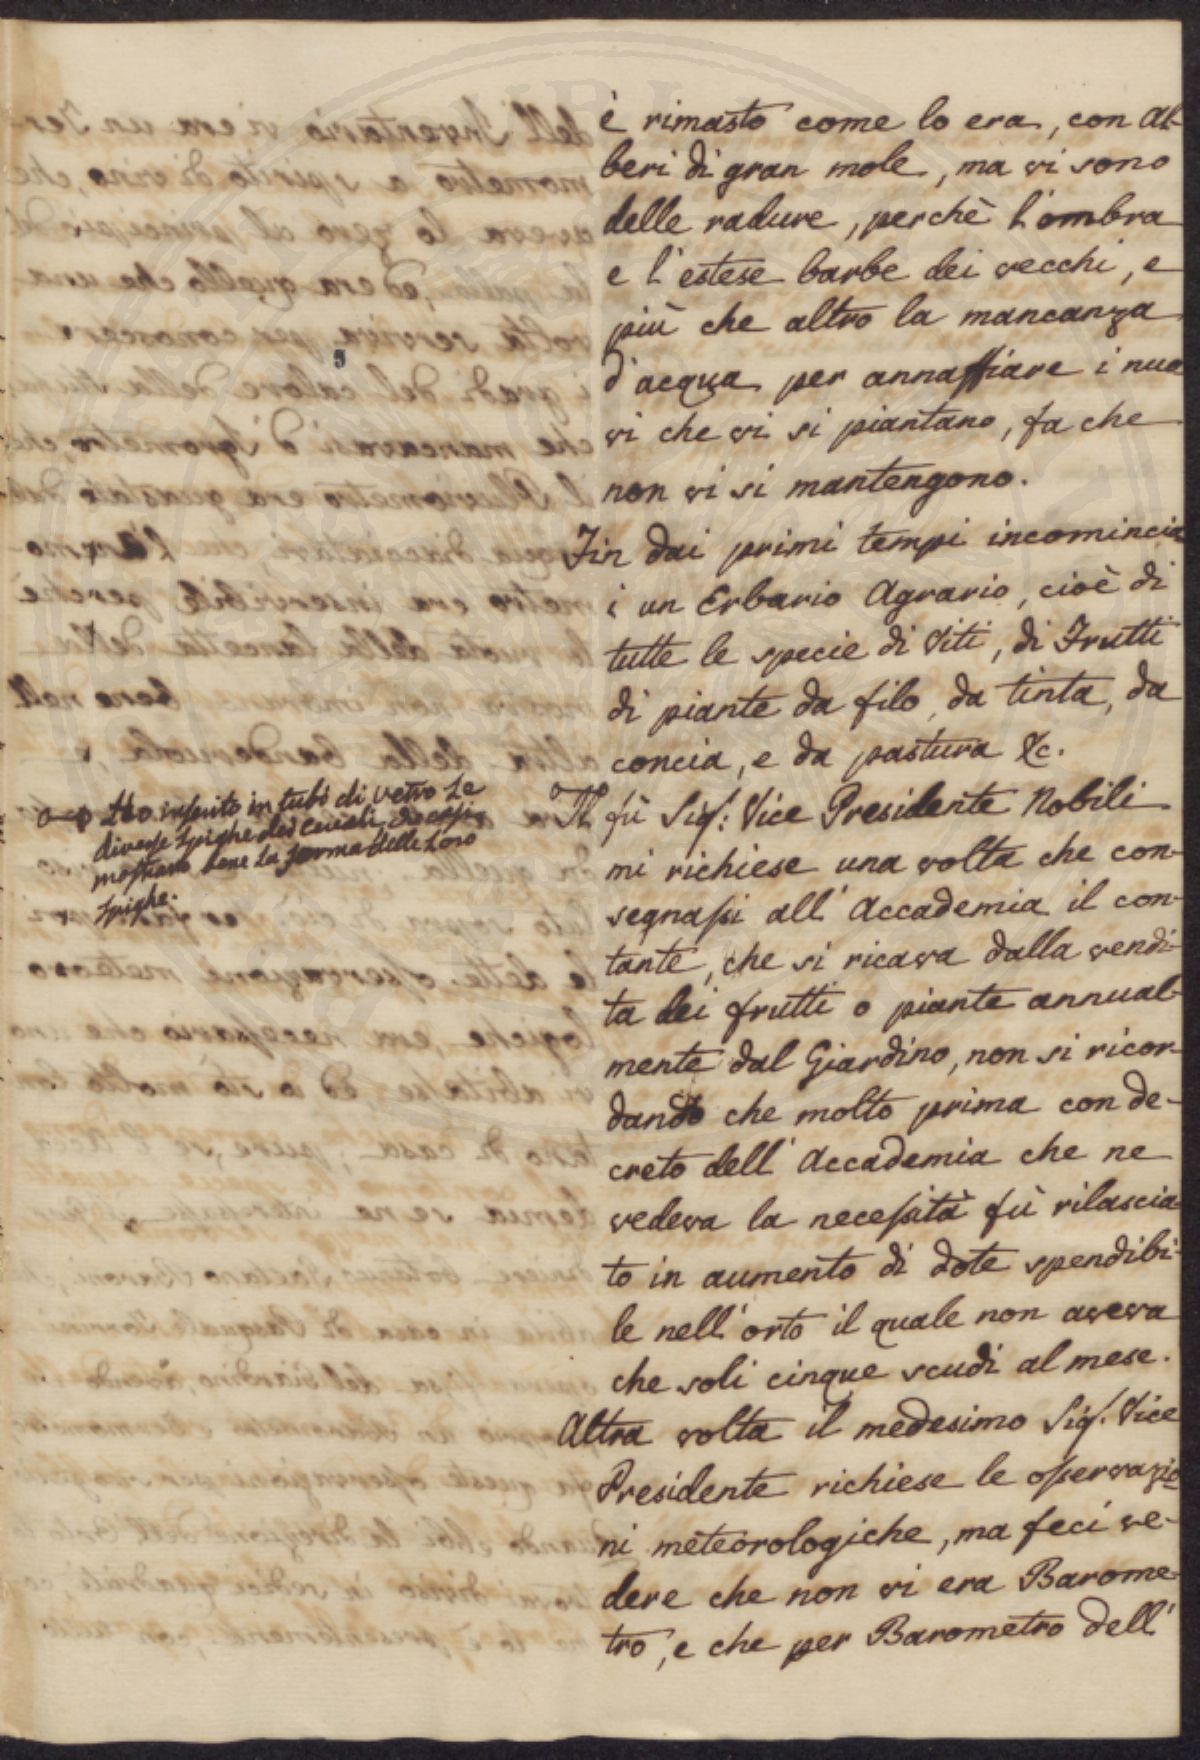 è rimasto come lo era, con Al-
beri di gran mole, ma vi sono
delle radure, perchè l'ombra
e l'estese barbe dei vecchi, e
più che altro la mancanza
d'acqua per annaffiare i nuo
vi che vi si piantano, fa che
non vi si mantengono.
Fin dai primi tempi incomincia
i un Erbario Agrario, cioè di
tutte le specie di Viti, di Frutti
di piante da filo, da tinta, da
concia, e da pastura &c.
Ho inserito in tubi di vetro Le
diverse Spighe dei Cereali, che così
mostrano bene La forma delle Loro
Spighe.
Il fù Sig: Vice Presidente Nobili
mi richiese una volta che con-
segnassi all' Accademia il con-
tante, che si ricava dalla vendi-
ta dei frutti o piante annual-
mente dal Giardino, non si ricor-
dando che molto prima con de-
creto dell' Accademia che ne
vedeva la necessità fù rilascia-
to in aumento di dote spendibi-
le nell' orto il quale non aveva
che soli cinque scudi al mese.
Altra volta il medesimo Sig: Vice
Presidente richiese le osservazio
ni meteorologiche, ma feci ve-
dere che non vi era Barome-
tro, e che per Barometro dell'